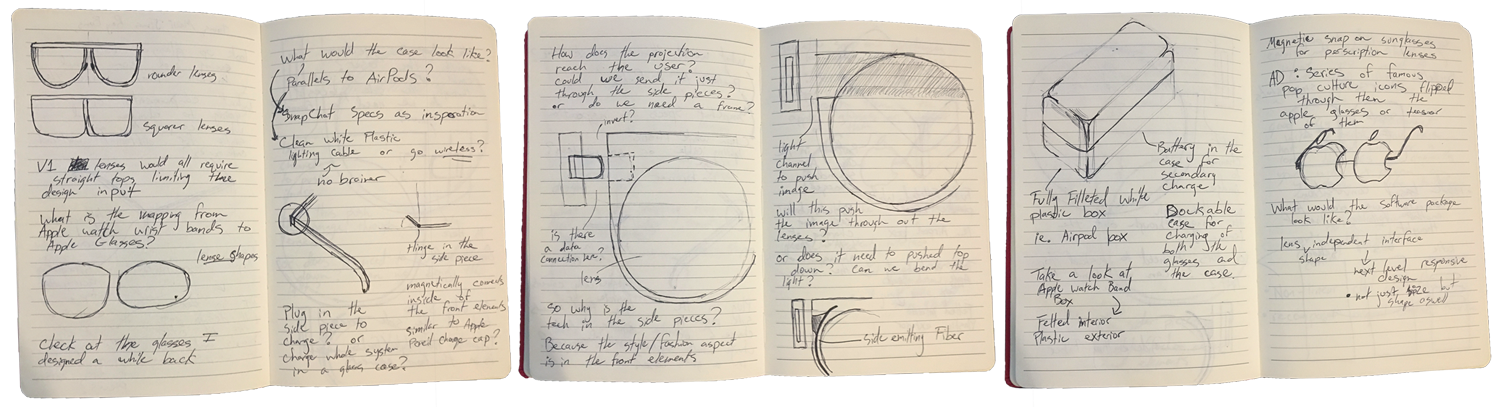 rounder lenses
squarer lenses
V1 lenses would all require
straight tops limiting the
design input
What is the mapping from
Apple watch wrist bands to
Apple Glasses?
lense shapes
Check out the glasses I
designed a while back
What would the case look like?
Parallels to AirPods?
Snapchat Specs as insperation
Clean white Plastic
lighting cable or go wireless?
no brainer
Hinge in the
side piece
magnetically connects
inside of
the front elements
similar to Apple
Pencil charge cap?
Plug in the
side piece to
charge? or
charge whole system
in a glass case?
How does the projection
reach the user?
could we send it just
through the side pieces?
or do we need a frame?
invert?
is there
a data
connection here?
lens
so why is the
tech in the side pieces?
Because the style/fashion aspect
is in the front elements
light
channel
to push
image
will this push
the image through out the
lenses?
or does it need to pushed top
down? Can we bend the
light?
side emitting Fiber
Battery in the
case for
secondary
charge
Fully Filleted White
plastic box
ie. Airpod box
Dockable
case for
charging of
both the
glasses and
the case.
Take a look at
Apple watch Band
Box
Felted interior
Plastic exterior
Magnetic snap on sunglasses
for perscription lenses
AD: Series of famous
pop culture icons flipped
through them the
apple glasses or
of them
What would the software package
look like?
lens independent interface
shape
next level responsive
design
• not just size but
shape aswell